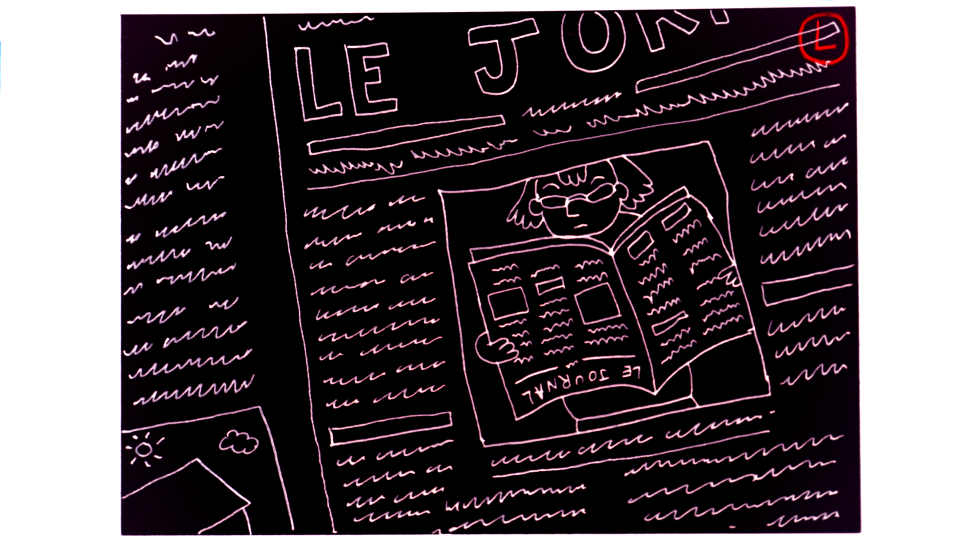 LE JOR
L
LE JOURNAL